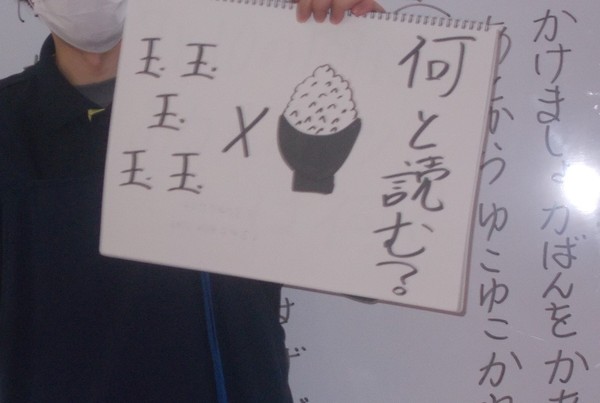 かけましょかばんをかあ
うゆこゆこか
何と読む?
玉 玉
玉 ×
玉 玉